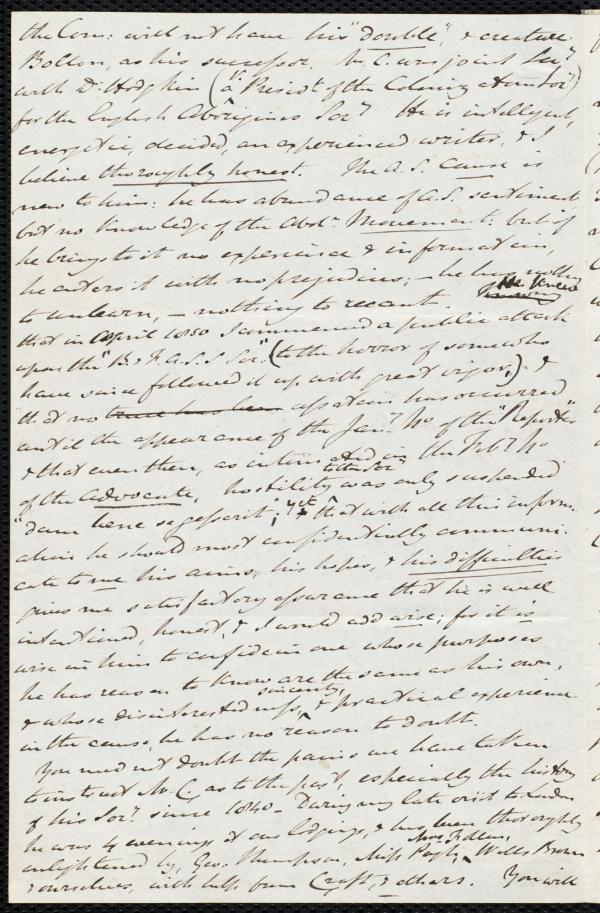 the Com: will not have his "double", & creature
Bolton, as his successor. Mr. C. was joint Secy
with Dr. Hodgkin (a V. Presidt of the Coloniz
for the English Aborigines Socy. He is intelligent,
energetic, decided, an experienced writer, & I
believe thoroughly honest. The A. S. cause is
new to him: he has abundance of A.S. sentiment
but no knowledge of the Abol'n Movement: but if
he brings to it no experience & information,
he enters it with no prejudices; — he has nothing
to unlearn, — nothing to recant. He knew
that in April 1850 I commenced a public attack
upon the "B. & F. A. S. Soc." (to the horror of some who
have since followed it up with great vigor,) - &
that no cessation has occurred
until the appearance of the Jany. No. of the "Reporter"
& that even then, as intimated in the Feby. No
of the Advocate, hostility to the Socy was only suspended
"dum bene se gesserit"; yet that with all this inform-
ation he should most confidentially communi-
cate to me his aims, his hopes, & his difficulties
gives me satisfactory assurance that he is well
intentioned, honest, & I would add wise; for it is
wise in him to confide in one whose purposes
he has reason to know are the same as his own,
& whose disinterestedness, sincerity, & practical experience
in the cause, he has no reason to doubt.
You need not doubt the pains we have taken
to instruct Mr. C. as to the past, especially the history
of his Socy. since 1840 - During my late visit to London
he was 4 evenings at our lodgings, & has been thoroughly
enlightened by, Geo. Thompson, Miss Pugh, Mrs. Follen, Wells Brown
& ourselves, with help from Craft, & others. You will